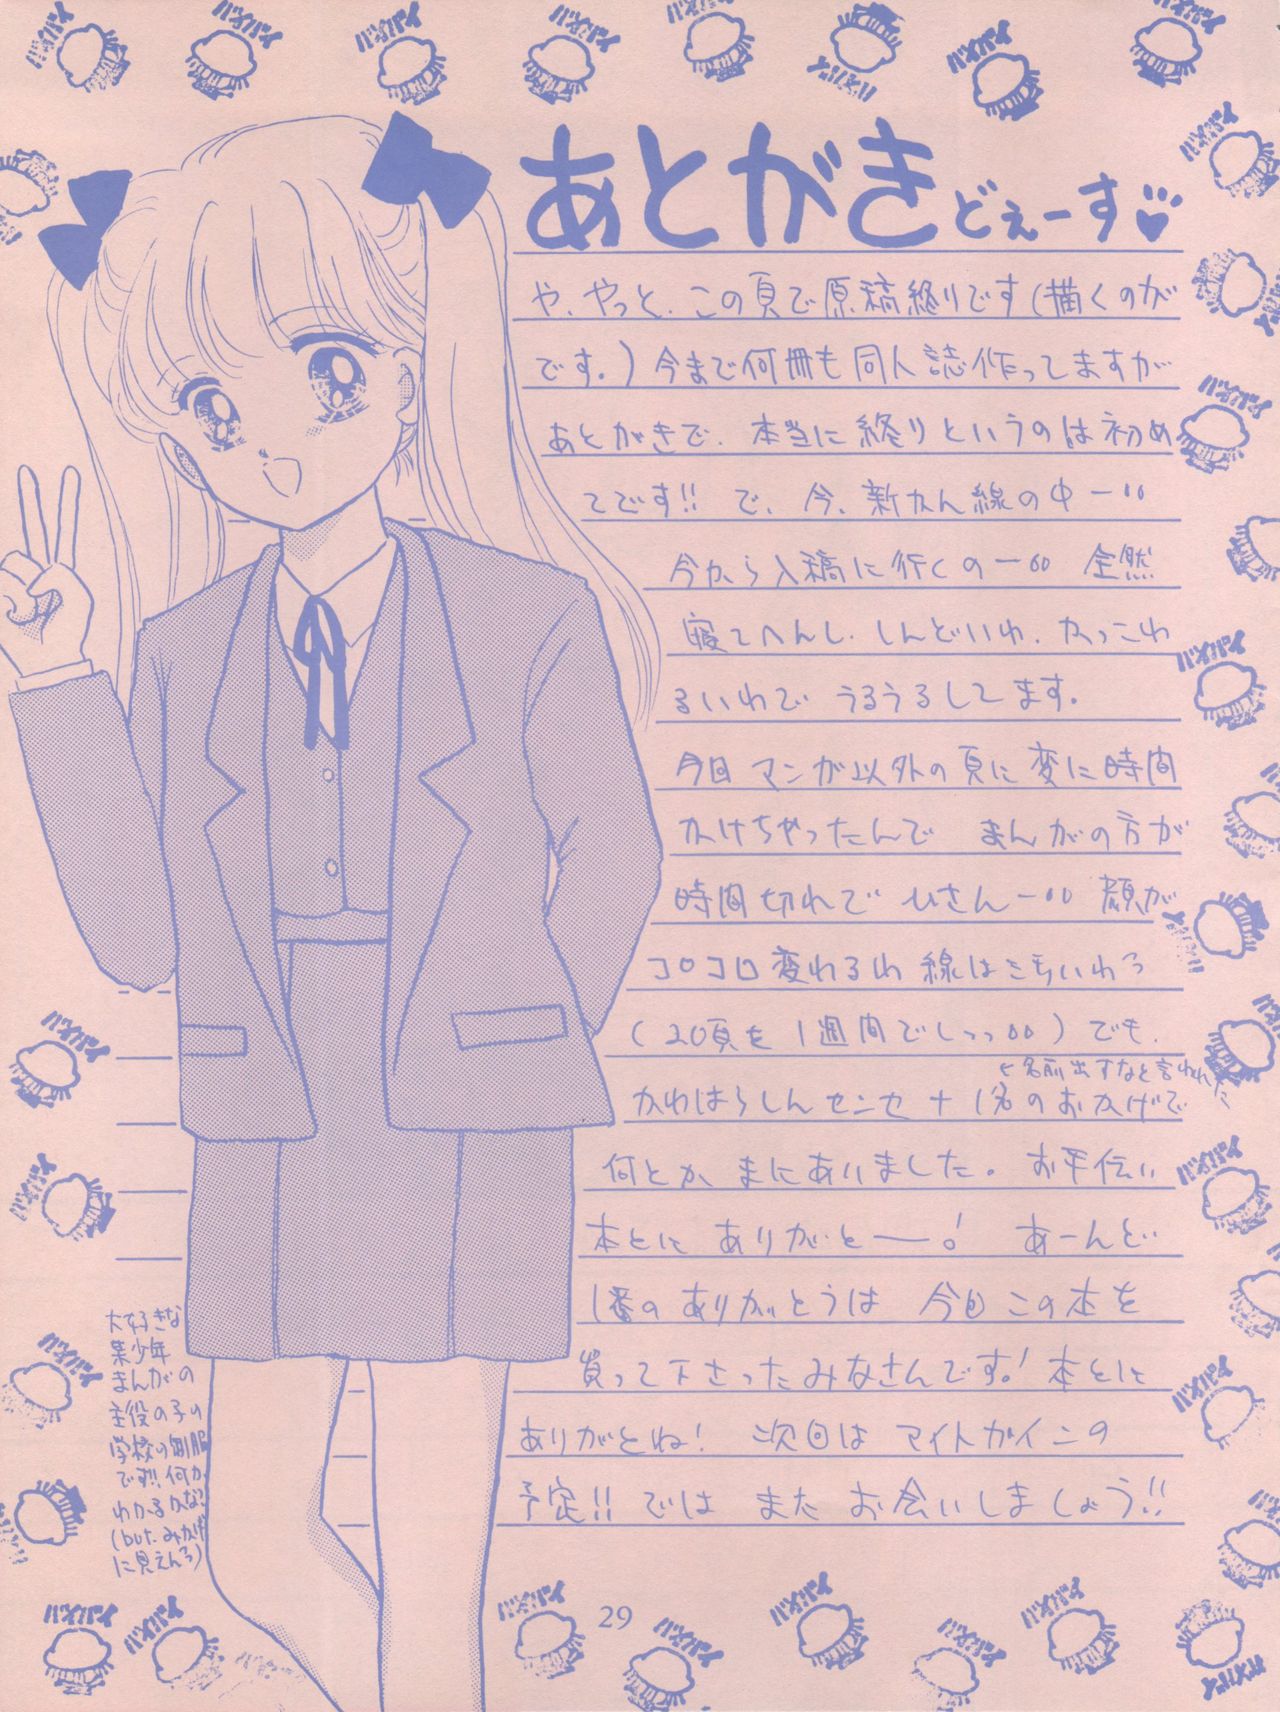 あとがきどぇーす
や、やっと、この頁で原稿終りです(描くのが
です。)今まで何冊も同人誌作ってますが
あとがきで、本当に終りというのは初め
てです!! で、今、新かん線の中ー
今から入稿に行くのー 全然
寝てへんし、しんどいわ、かっこわ
るいわで うるうるしてます。
今回マンガ以外の頁に変に時間
かけちゃったんで まんがの方が
時間切れで ひさんー 顔が
コロコロ変わるわ 線は
(20頁を1週間でしっっ)でも、
←名前出すなと言われた
かわはらしんセンセ+1名のおかげで
何とか まにあいました。お手伝い
本とに ありがとー! あーんど
1番のありがとうは 今回この本を
買って下さったみなさんです!本とに
ありがとね! 次回は マイトガインの
予定!! では また お会いしましょう!!
大好きな
某少年
まんがの
主役の子の
学校の制服
です!!何か
わかるかな?
(but.みかげ
に見えんろ)
29